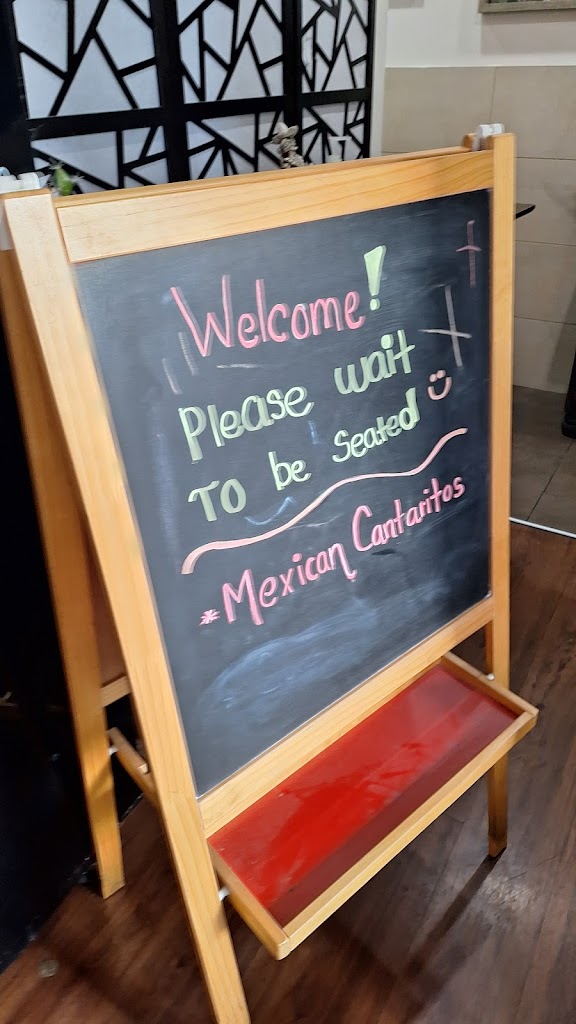 Welcome!
Please wait
To be Seated :)
* Mexican Cantaritos